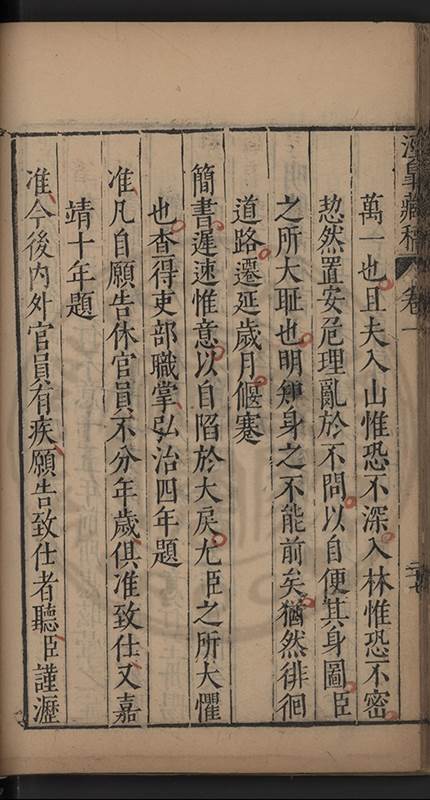 萬一也且夫入山惟恐不深入林惟恐不密
恝然置安危理亂於不問以自便其身圖臣
之所大耻也明知身之不能前矣猶然徘徊
道路遷延歲月偃蹇
簡書遲速惟意以自陷於大戾尤臣之所大懼
也查得吏部職掌弘治四年題
准凡自願告休官員不分年歲俱准致仕又嘉
靖十年題
准今後内外官員有疾願告致仕者聽臣謹瀝
藏稿
卷一